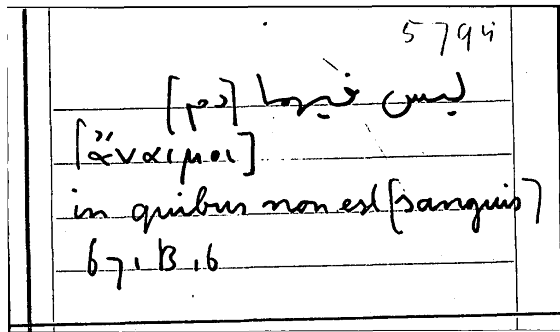 5794
ليس فيها [دم]
[ἄναιμοι]
in quibus non est [sanguis]
67, B, 6